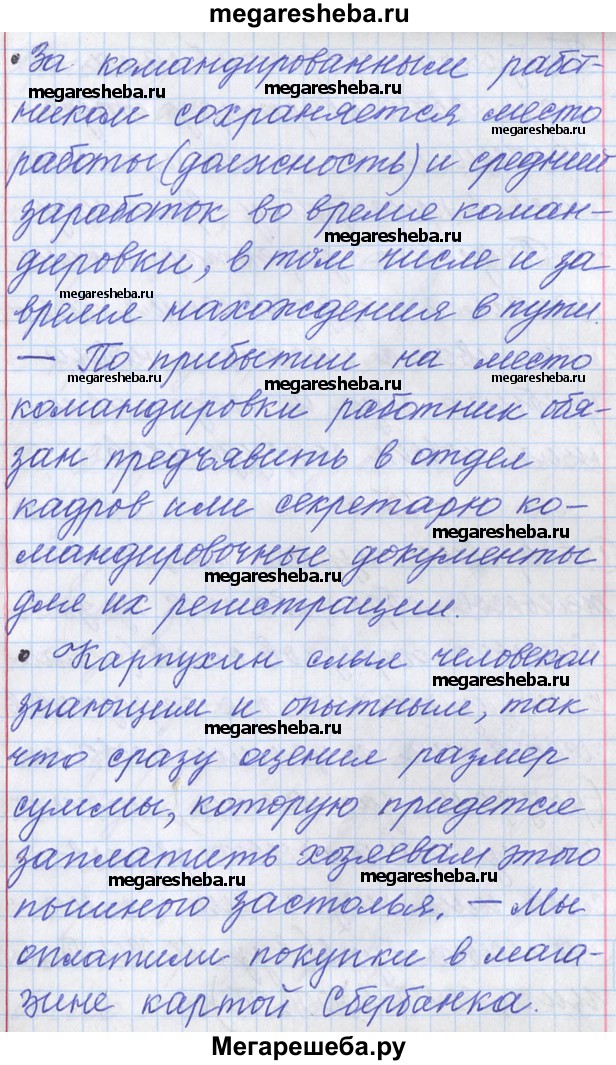 megaresheba.ru
• За командированным работ-
megaresheba.ru megaresheba.ru
ником сохраняется место
megaresheba.ru
работы (должность) и средний
заработок во время коман-
megaresheba.ru
дировки, в том числе и за
megaresheba.ru
время нахождения в пути.
— По прибытии на место
megaresheba.ru megaresheba.ru megaresheba.ru
командировки работник обя-
зан предъявить в отдел
кадров или секретарю ко-
megaresheba.ru
мандировочные документы
megaresheba.ru
для их регистрации.
• Карпухин слыл человеком
megaresheba.ru
знающим и опытным, так
megaresheba.ru
что сразу оценил размер
суммы, которую придется
заплатить хозяевам этого
megaresheba.ru megaresheba.ru
пышного застолья. — Мы
оплатили покупки в мага-
зине картой Сбербанка.
Мегарешеба.ру